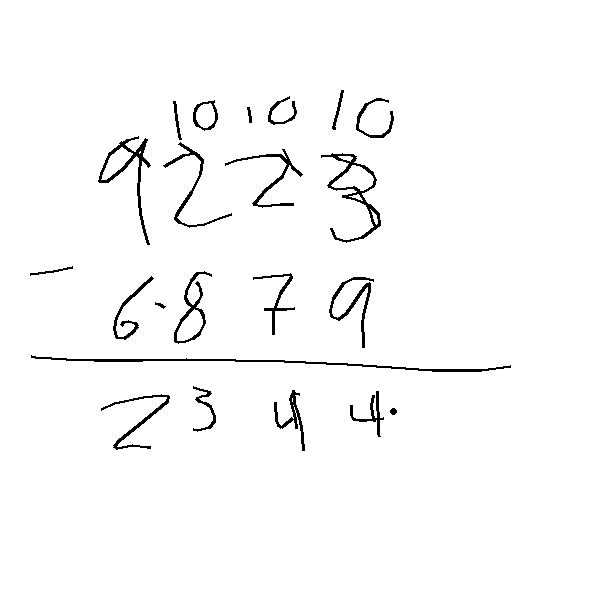 10 10 10
9223
- 6879
2344